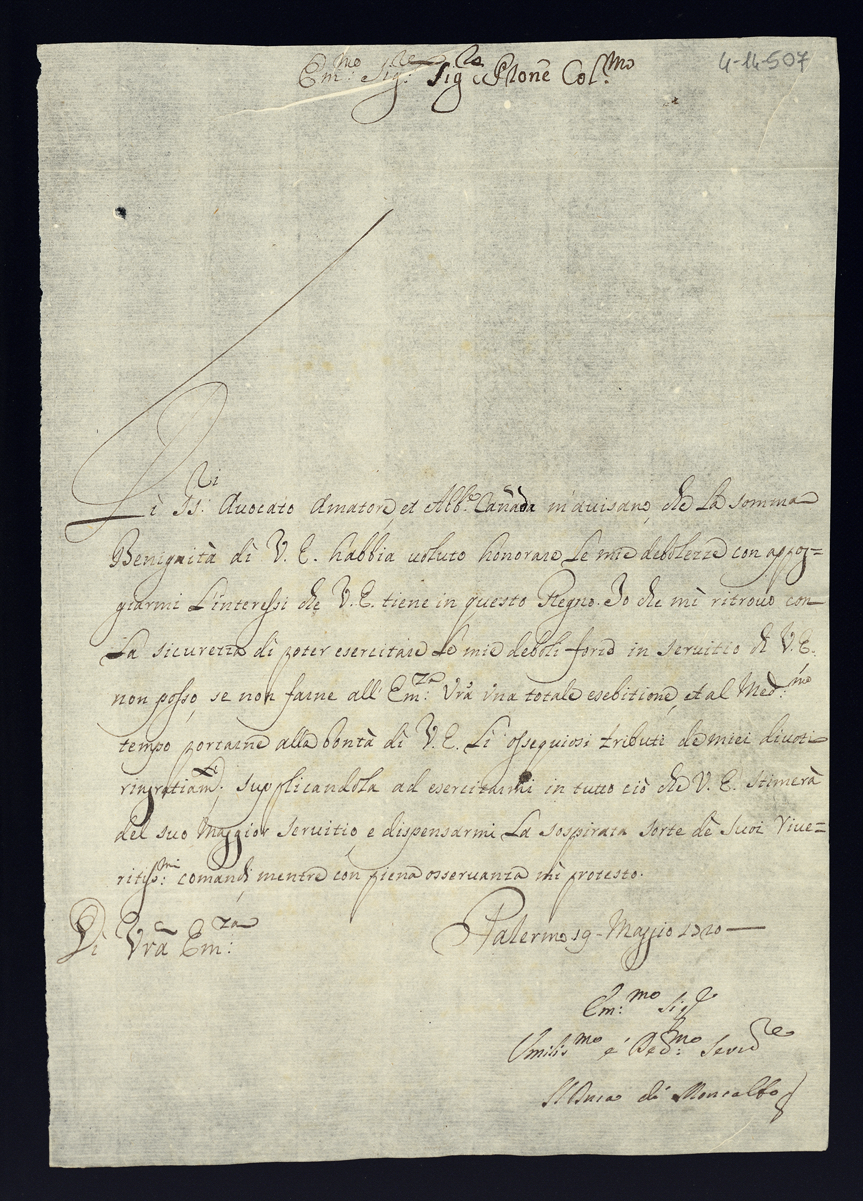 4-14-507
Em:mo Sig:re Sig:re e Prone Col:mo
Li SS:ri Avocato Amatore, et Alb:o Cañada m'avisano, che La somma
Benignità di V. E. habbia voluto honorare Le mie debolezze con appog=
giarmi L'interessi che V. E. tiene in questo Regno. Io che mi ritrovo con
La sicurezza di poter esercitare Le mie deboli forze in servitio di V. E.
non posso, se non farne all' Em:za Vrã vna totale esebitione, et al Med:mo
tempo portarne alla bontà di V. E. Li ossequiosi tributi de miei divoti
ringratiam:ti; supplicandola ad esercitarmi in tutto ciò che V. E. stimerà
del suo Maggior servitio, e dispensarmi La sospirata sorte de suoi Rive=
ritiss:mi comandi, mentre con piena osservanza mi protesto.
Di Vrã Em:za
Palermo 19 Maggio 1720
Em:mo Sig:re
Vmiliss:mo e Ded:mo Serv:re
Il Duca di Moncalbo